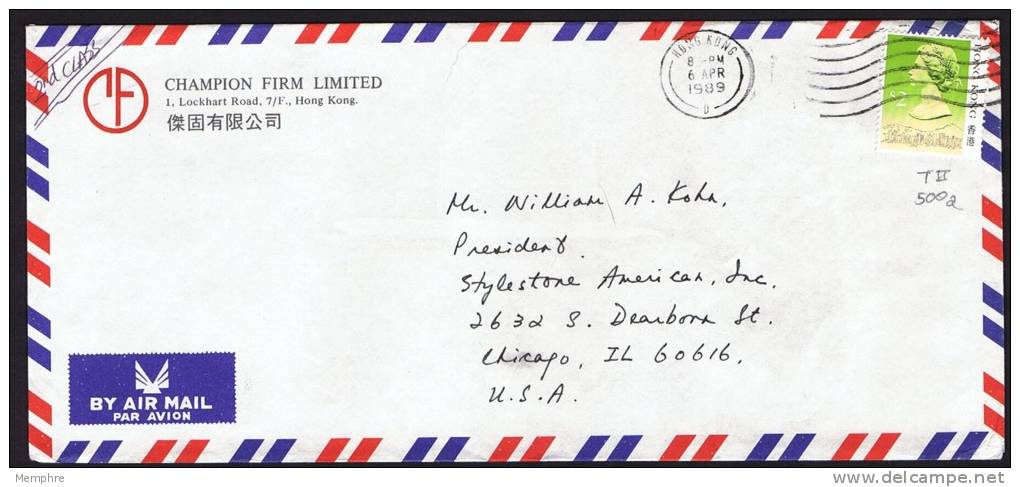 2nd CLASS
CHAMPION FIRM LIMITED
1, Lockhart Road, 7/F., Hong Kong.
傑固有限公司
HONG KONG
8 -PM
6 APR
1989
D
HONG KONG 香港
T II
500a
Mr. William A. Kohn,
President.
Stylestone American, Inc.
2632 S. Dearborn St.
Chicago, IL 60616.
U.S.A.
BY AIR MAIL
PAR AVION
Memphre
delcampe.net